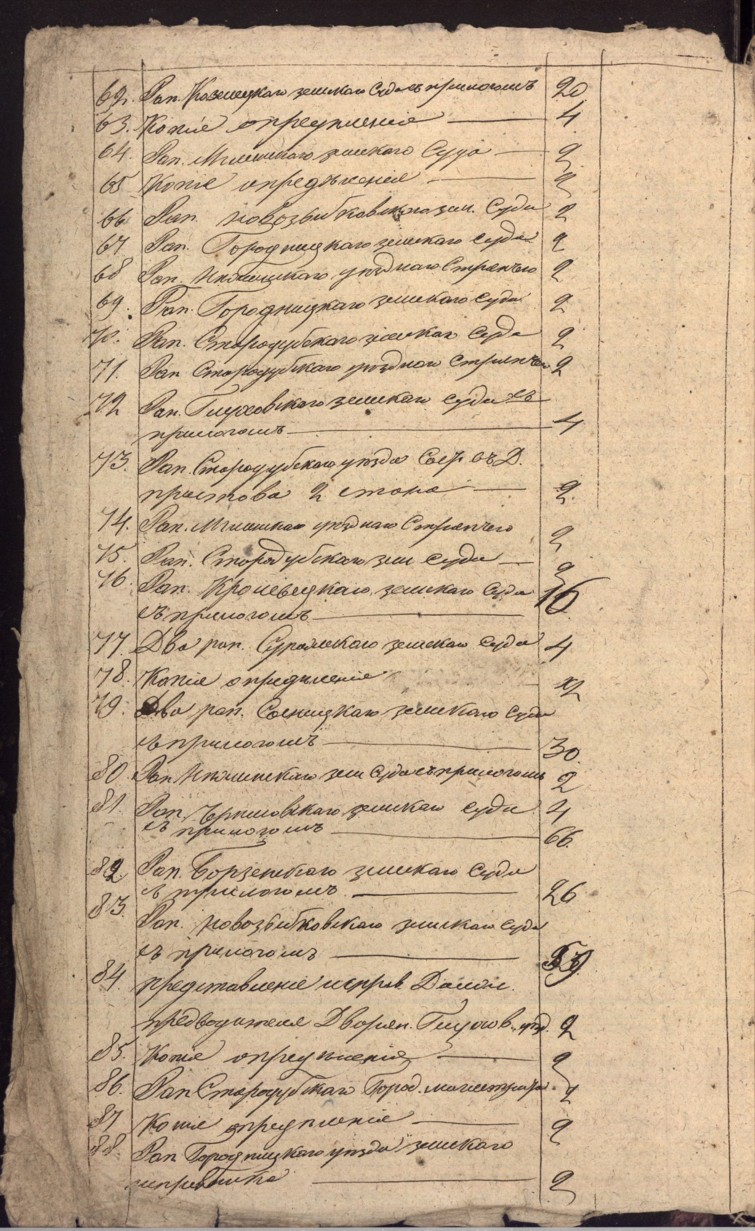 62. Рап. Козелецкаго земскаго Суда съ прилогомъ 20
63. Копіе опредѣленія — 4
64. Рап. Мглинскаго земскаго Суда — 2
65 Копіе опредѣленія — 2
66 Рап. Новозыбковскаго зем. Суда 2
67 Рап. Городницкаго земскаго Суда 2
68 Рап. уѣзднаго Стряпчего 2
69. Рап. Городницкаго земскаго Суда 2
70. Рап. Стародубскаго земскаго Суда 2
71 Рап Стародубскаго уѣзднаго Стряпчего 2
72 Рап. Глуховскаго земскаго Суда съ
прилогомъ — 4
73. Рап. Стародубскаго уѣзда въ Д.
пристова 2 стана — 2
74. Рап. Мглинскаго уѣзднаго Стряпчего 2
75. Рап. Стародубскаго зем Суда — 2
76 Рап. Кролевецкаго земскаго Суда 16
съ прилогомъ —
77 Два рап. Суражскаго земскаго Суда 4
78. Копіе опредѣленія 2
79. Два рап. Сосницкаго земскаго Суда
съ прилогомъ — 30
80. Рап. зем Суда съ прилогомъ 2
81. Рап. Черниговскаго земскаго Суда 4
съ прилогомъ — 66
82. Рап. Борзенскаго земскаго Суда
съ прилогомъ — 26
83. Рап. Новозыбковскаго земскаго Суда
съ прилогомъ —
84. представленіе исправ Должн.
предводителя Дворян. Глухов. уѣзд. 2
85. Копіе опредѣленія — 2
86. Рап Стародубскаго Город. магистрата 2
87 Копіе опредѣленія — 2
88. Рап Городницкаго уѣзда земскаго
исправника — 2